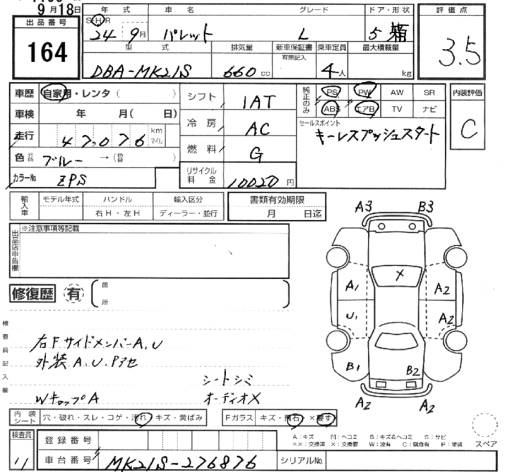 9月18日
出品番号
164
年式 車名 グレード ドア・形状
S H R
24年 9月 パレット L 5 箱
型式 排気量 新車保証書 乗車定員 最大積載量
有無記入
DBA-MK21S 660cc 4人 kg
評価点
3.5
車歴 自家用・レンタ( )
車検 年 月( 日)
走行 47,076 km マイル
色 ブルー → ( )
カラーNo ZPS
シフト 1AT
冷房 AC
燃料 G
リサイクル料金 10020円
純正のみ
PS PW AW SR
ABS エアB TV ナビ
セールスポイント
キーレスプッシュスタート
内装評価
C
輸入車 モデル年式 ハンドル 輸入区分
右H・左H ディーラー・並行
書類有効期限
月 日迄
出品店申告欄
※注意事項等記載
修復歴 有
箇所
検査員記入欄
右FサイドメンバーA、U
外装A、U、Pアセ
シートシミ
WキャップA オーディオX
A3 B3
A1 X A2
U1 A2
B1 B2 A2
A2 A2
内装シート 穴・破れ・スレ・コゲ・汚れ・キズ・黄ばみ
Fガラス キズ・飛石・X・要す
スペア
検査員
11
登録番号
車台番号 MK21S-276876
シリアルNo.
A:キズ U:ヘコミ B:キズ&ヘコミ S:サビ